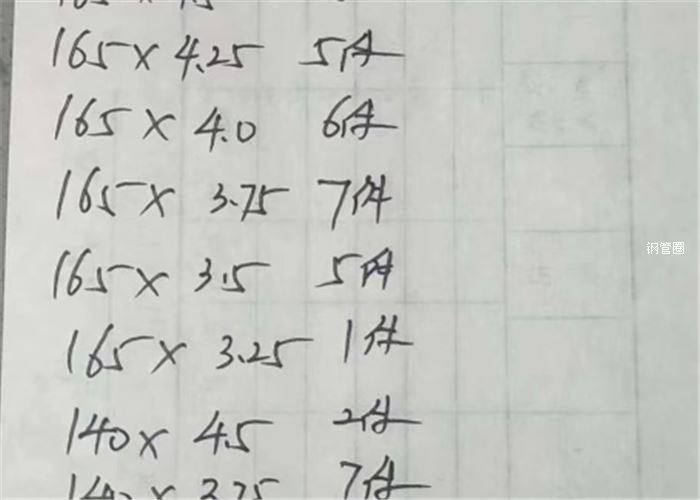 165×4.25 5件
165×4.0 6件
165×3.75 7件
钢管圈
165×3.5 5件
165×3.25 1件
140×4.5 2件
140×3.75 7件